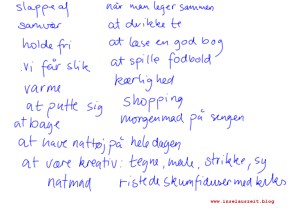 slappe af   når man leger sammen
samvær   at drikke te
holde fri   at læse en god bog
vi får slik   at spille fodbold
varme   kærlighed
at putte sig   shopping
at bage   morgenmad på sengen
at have nattøj på hele dagen
at være kreativ: tegne, male, strikke, sy
natmad   ristede skumfiduser med keks
www.inselauszeit.blog